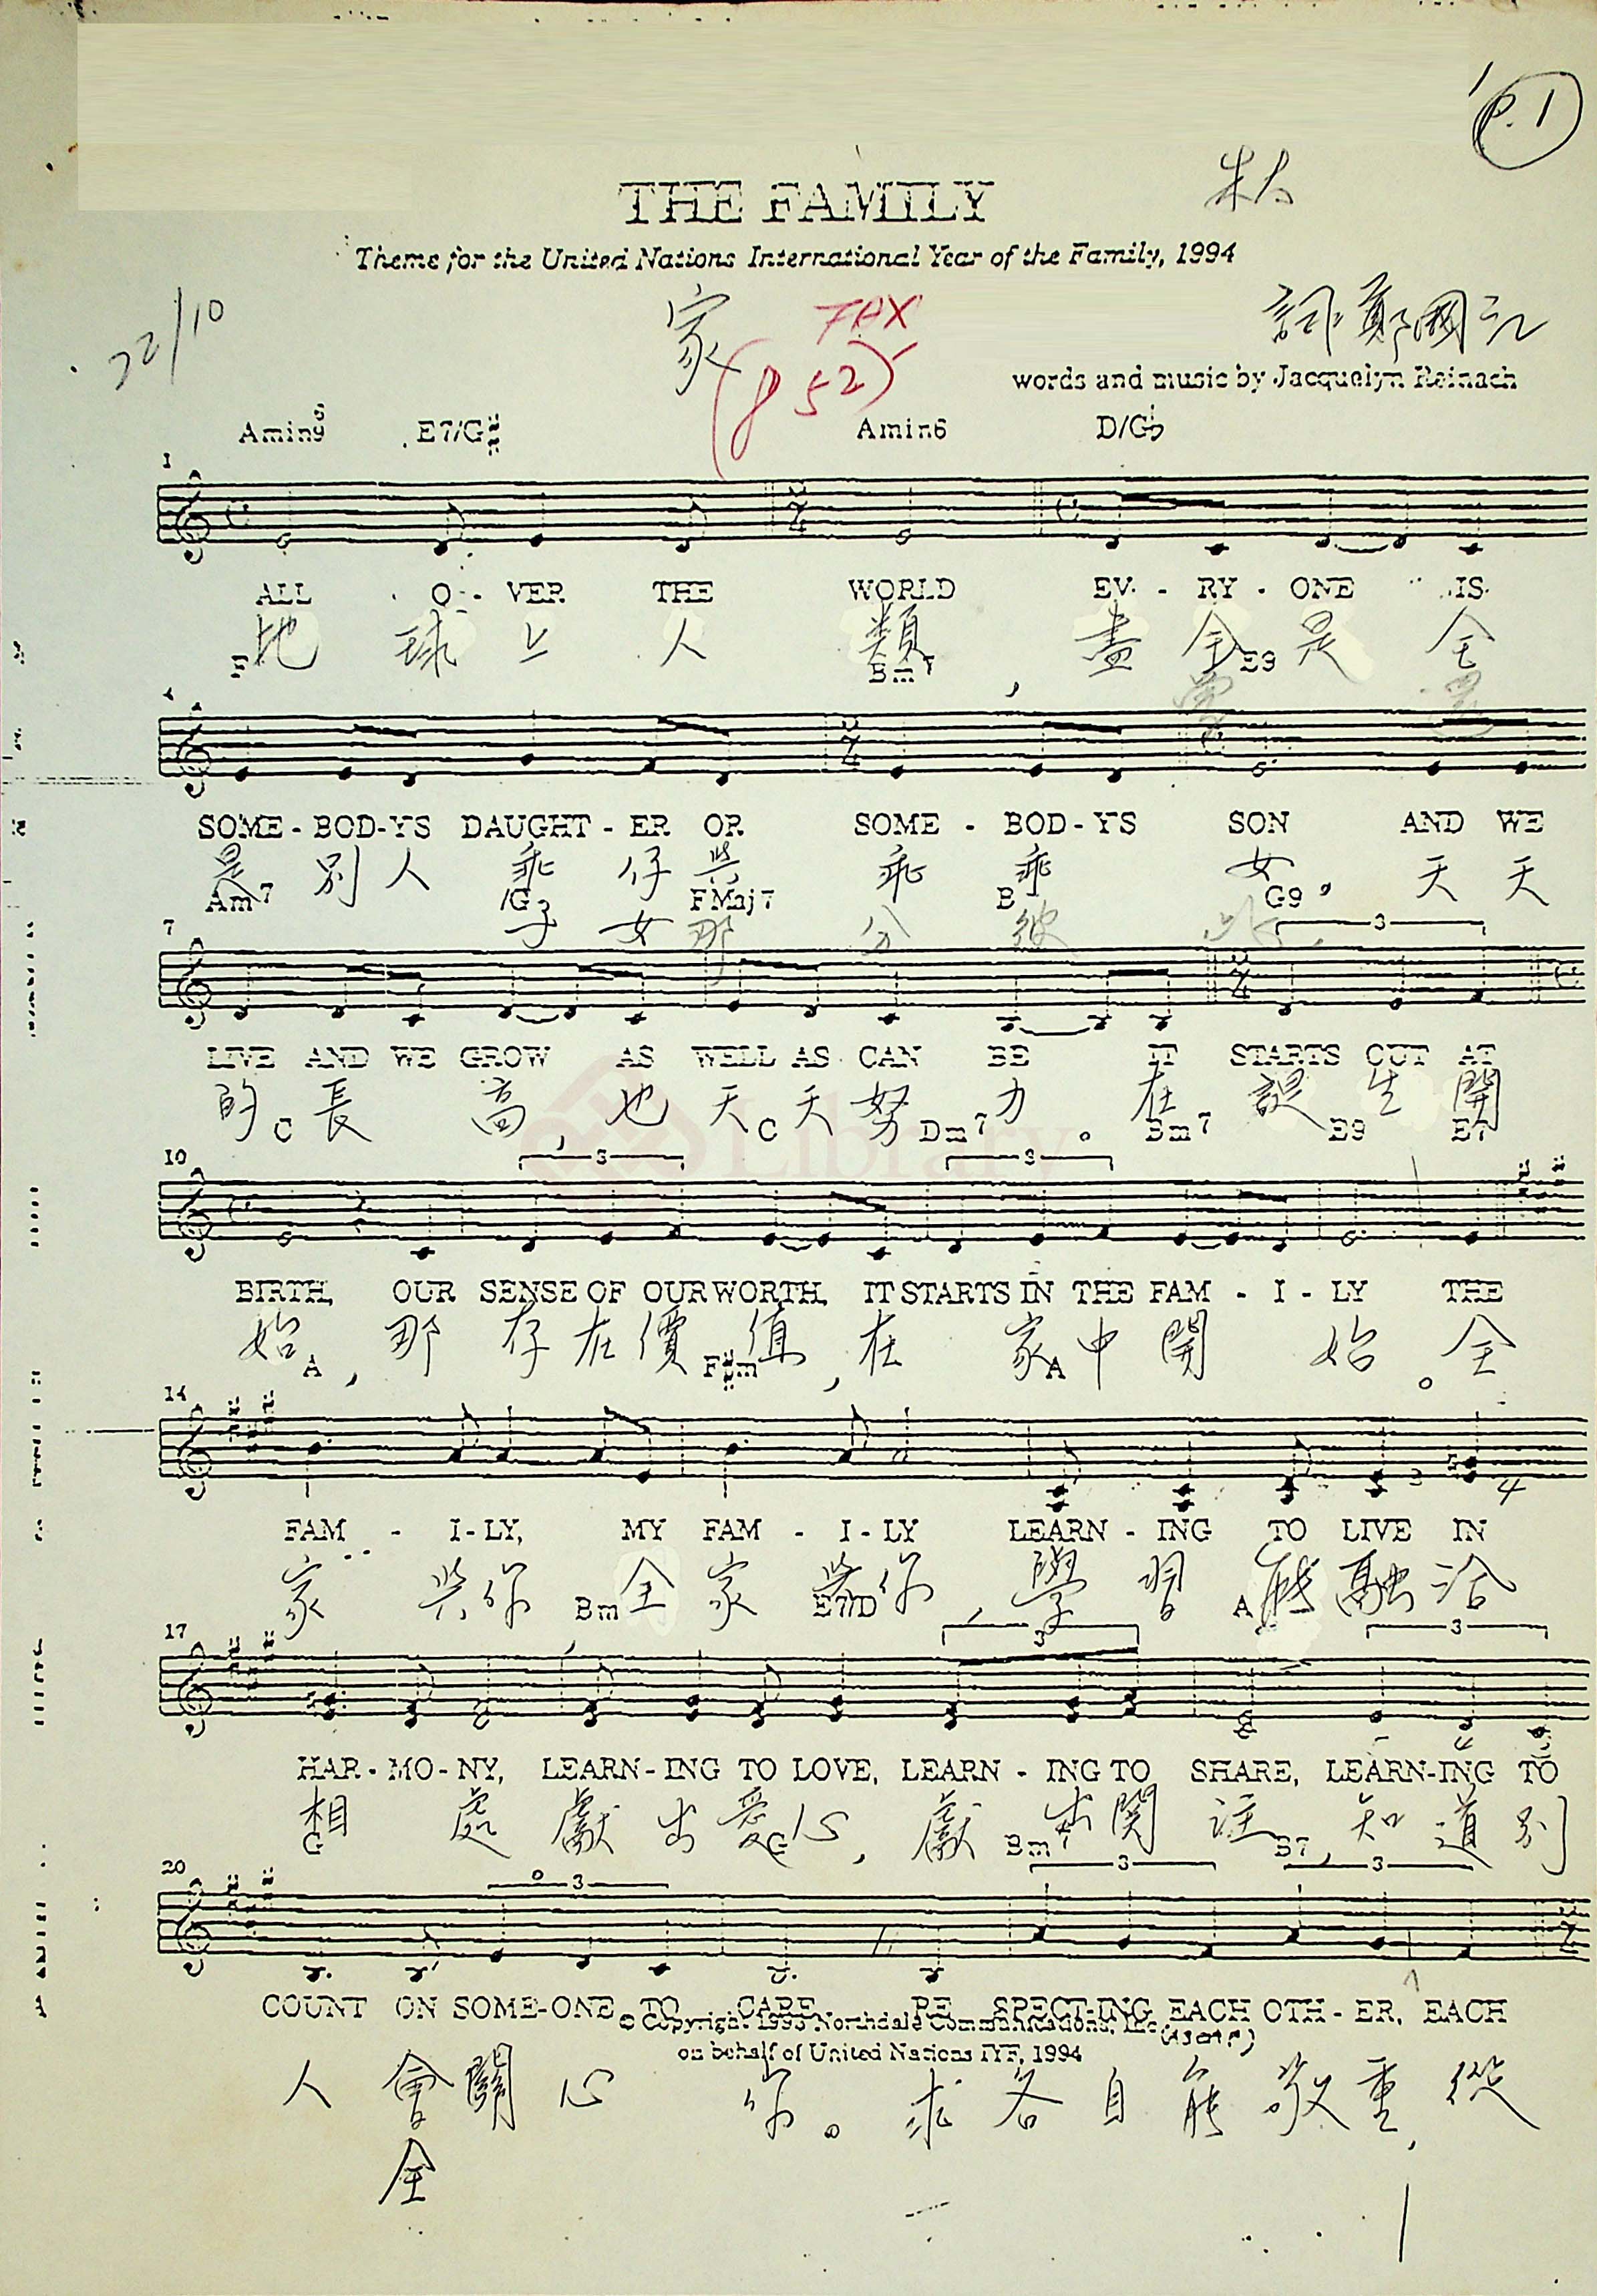 P. 1
THE FAMILY
Theme for the United Nations International Year of the Family, 1994
22/10
家
FAX
(852)
詞 鄭國江
words and music by Jacquelyn Reinach
Amin9 E7/G# Amin6 D/G♭
1
ALL O - VER THE WORLD EV - RY - ONE IS
地 球 上 人 類 , 盡 全 是 全
F Bm7 E9
4
SOME - BOD - Y'S DAUGHT - ER OR SOME - BOD - Y'S SON AND WE
是 別 人 乖 仔 與 乖 乖 女 , 天 天
Am7 /G FMaj7 B G9
子 女 那 分 彼 此 ,
7 3
LIVE AND WE GROW AS WELL AS CAN BE IT STARTS OUT AT
的 長 高 , 也 天 天 努 力 。 在 誕 生 開
C C Dm7 Bm7 E9 E7
Library
10 3 3
BIRTH, OUR SENSE OF OUR WORTH, IT STARTS IN THE FAM - I - LY THE
始 , 那 存 在 價 值 , 在 家 中 開 始 。 全
A F#m A
14
FAM - I - LY, MY FAM - I - LY LEARN - ING TO LIVE IN
家 與 你 , 全 家 與 你 , 學 習 能 融 洽
Bm E7/D A
17 3 3
HAR - MO - NY, LEARN - ING TO LOVE, LEARN - ING TO SHARE, LEARN-ING TO
相 處 獻 出 愛 心 , 獻 出 關 注 , 知 道 別
G G Bm7 B7
20 3 3 3
COUNT ON SOME-ONE TO CARE RE SPECT-ING EACH OTH - ER, EACH
© Copyright 1993 Northdale Communications, Inc. (ASCAP)
on behalf of United Nations IYF, 1994
人 會 關 心 你 。 求 各 自 能 敬 重 , 從
全